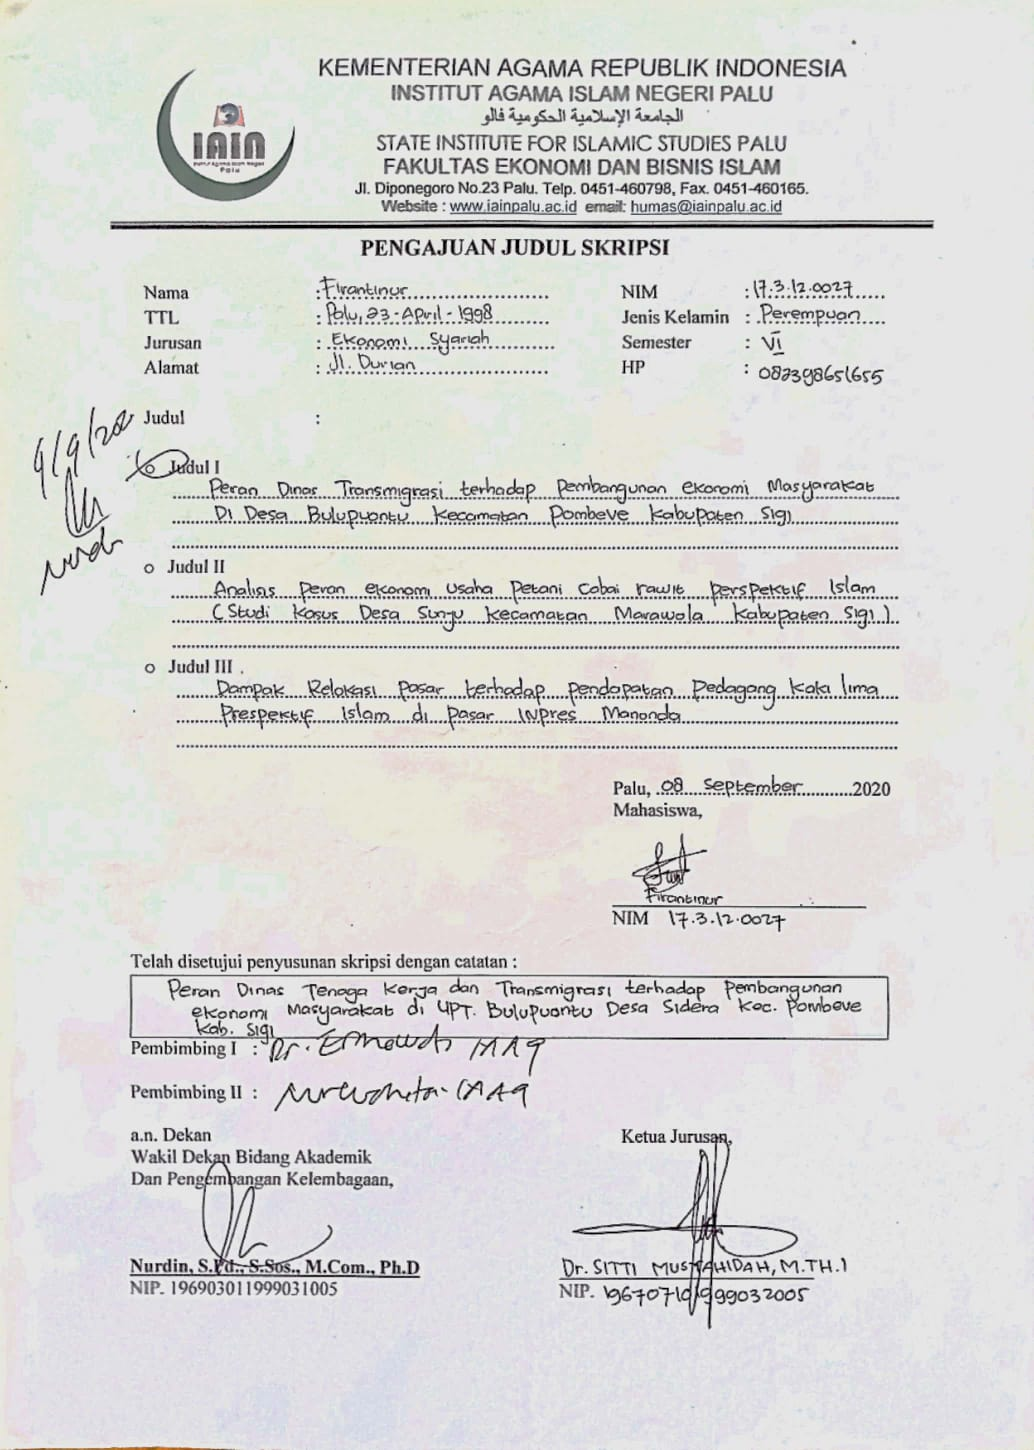 KEMENTERIAN AGAMA REPUBLIK INDONESIA
INSTITUT AGAMA ISLAM NEGERI PALU
الجامعة الإسلامية الحكومية فالو
STATE INSTITUTE FOR ISLAMIC STUDIES PALU
FAKULTAS EKONOMI DAN BISNIS ISLAM
Jl. Diponegoro No.23 Palu. Telp. 0451-460798, Fax. 0451-460165.
Website : www.iainpalu.ac.id email: humas@iainpalu.ac.id
IAIN
Institut Agama Islam Negeri
Palu
PENGAJUAN JUDUL SKRIPSI
Nama : Firantinur NIM : 17.3.12.0027
TTL : Palu, 23-April-1998 Jenis Kelamin : Perempuan
Jurusan : Ekonomi Syariah Semester : VI
Alamat : Jl. Durian HP : 082398651655
Judul :
Judul I
Peran Dinas Transmigrasi terhadap Pembangunan ekonomi Masyarakat
Di Desa Bulupuontu Kecamatan Pombeve Kabupaten Sigi
o Judul II
Analisis peran ekonomi usaha Petani Cabai rawit perspektif Islam
(Studi Kasus Desa Sunju Kecamatan Marawola Kabupaten Sigi)
o Judul III .
Dampak Relokasi Pasar terhadap pendapatan Pedagang Kaki lima
Prespektif Islam di Pasar INpres Manonda
Palu, 08 September 2020
Mahasiswa,
Firantinur
NIM 17.3.12.0027
Telah disetujui penyusunan skripsi dengan catatan :
Peran Dinas Tenaga Kerja dan Transmigrasi terhadap Pembangunan
ekonomi Masyarakat di UPT. Bulupuontu Desa Sidera Kec. Pombeve
Kab. Sigi
Pembimbing I : Dr. Ermawati M.Ag
Pembimbing II : Nurwahida M.Ag
a.n. Dekan
Wakil Dekan Bidang Akademik
Dan Pengembangan Kelembagaan,
Nurdin, S.Pd., S.Sos., M.Com., Ph.D
NIP. 196903011999031005
Ketua Jurusan,
Dr. SITTI MUSYAHIDAH, M.TH.I
NIP. 196707101999032005